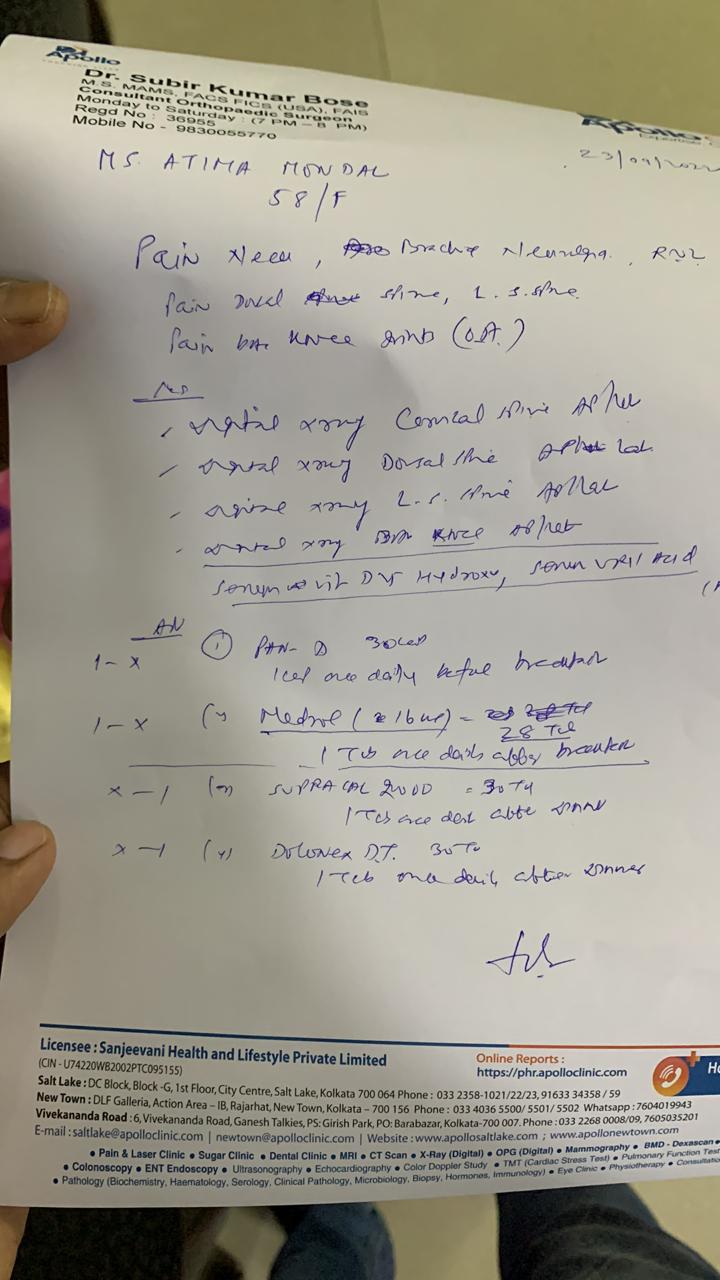 Apollo
Dr. Subir Kumar Bose
M.S. MAMS, FACS FICS (USA), FAIS
Consultant Orthopaedic Surgeon
Monday to Saturday : (7 PM – 8 PM)
Regd No : 36955
Mobile No - 9830055770
Apollo
MS. ATIMA MONDAL
58/F
Pain Neck,
Pain Dorsal spine, L.S. Spine
Pain Knee Joints (O.A.)
Digital xray Cervical Spine AP/Lat
Digital xray Dorsal Spine AP Lat
Digital xray L.S. Spine AP/Lat
Digital xray Knee AP/Lat
Serum vit D Hydroxy, Serum Uric Acid
1 - x (i) PAN-D 30 Cap
1 cap once daily before breakfast
1 - x Medrol (16 mg) = 28 Tab
1 Tab once daily after breakfast
x - 1 SUPRACAL 2000 = 30 Tab
1 Tab once daily after dinner
x - 1 DOLONEX D.T. 30 Tab
1 Tab once daily after dinner
Licensee : Sanjeevani Health and Lifestyle Private Limited
(CIN - U74220WB2002PTC095155)
Online Reports :
https://phr.apolloclinic.com
Salt Lake : DC Block, Block -G, 1st Floor, City Centre, Salt Lake, Kolkata 700 064 Phone : 033 2358-1021/22/23, 91633 34358 / 59
New Town : DLF Galleria, Action Area – IB, Rajarhat, New Town, Kolkata – 700 156 Phone : 033 4036 5500/ 5501/ 5502 Whatsapp : 7604019943
Vivekananda Road : 6, Vivekananda Road, Ganesh Talkies, PS: Girish Park, PO: Barabazar, Kolkata-700 007. Phone : 033 2268 0008/09, 7605035201
E-mail : saltlake@apolloclinic.com | newtown@apolloclinic.com | Website : www.apollosaltlake.com ; www.apollonewtown.com
• Pain & Laser Clinic • Sugar Clinic • Dental Clinic • MRI • CT Scan • X-Ray (Digital) • OPG (Digital) • Mammography • BMD - Dexascan •
• Colonoscopy • ENT Endoscopy • Ultrasonography • Echocardiography • Color Doppler Study • TMT (Cardiac Stress Test) • Pulmonary Function Test
• Pathology (Biochemistry, Haematology, Serology, Clinical Pathology, Microbiology, Biopsy, Hormones, Immunology) • Eye Clinic • Physiotherapy •